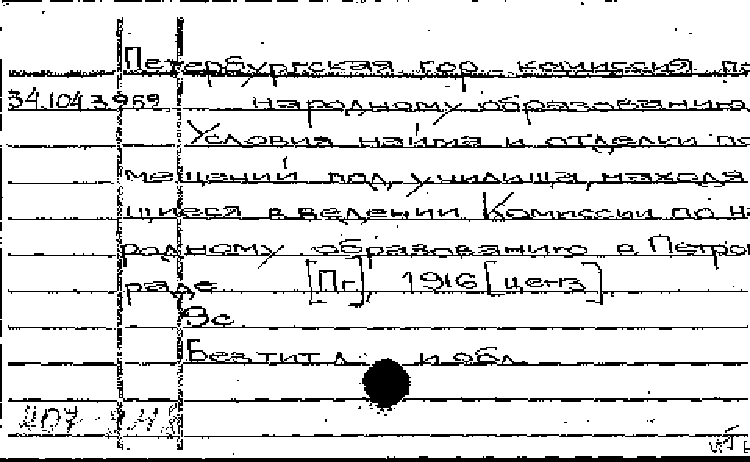 Петербургская гор. комиссия по
34.104.3.969 народному образованию.
Условия найма и отделки по-
мещений под училища, находя-
щиеся в ведении Комиссии по на-
родному образованию в Петро-
раде. [Пг], 1916 [ценз].
9с.
Без тит. л. и обл.